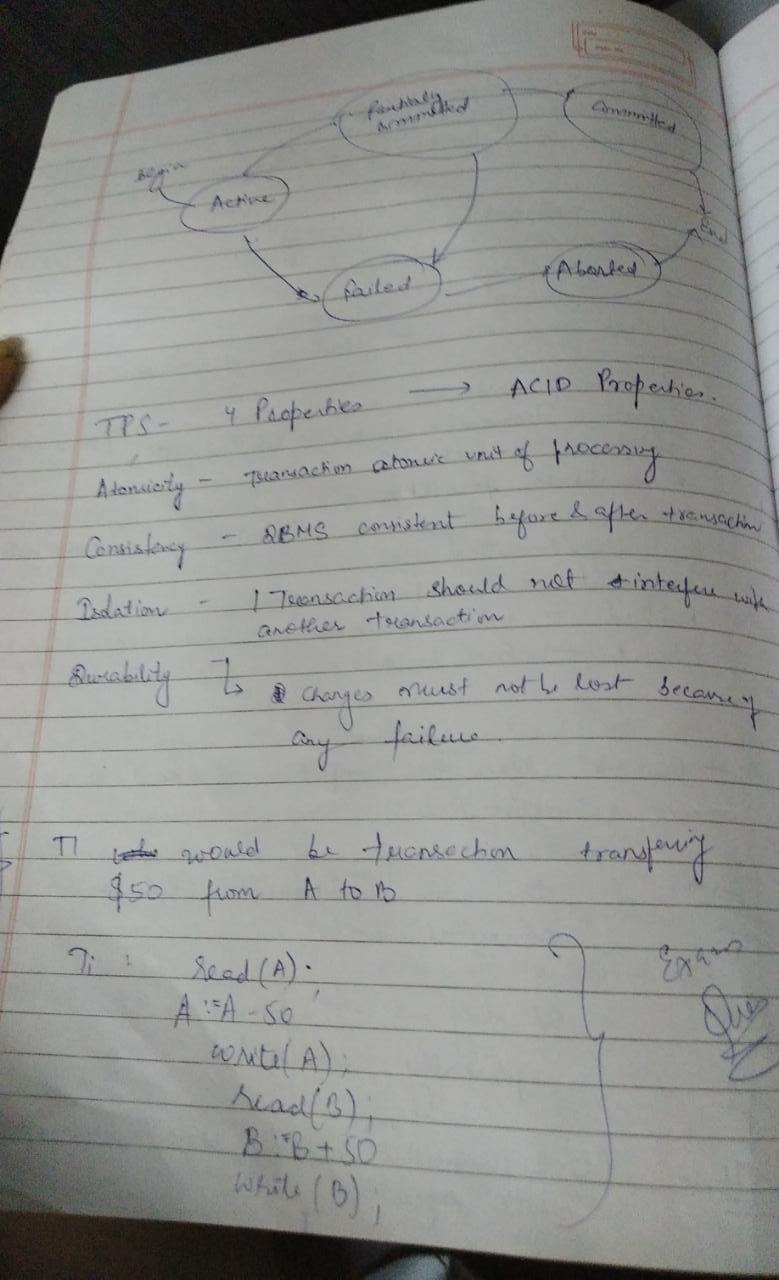 Partially
committed
Committed
Begin
Active
End
Failed
Aborted
TPS- 4 Properties → ACID Properties.
Atomicity - Transaction atomic unit of processing
Consistency - DBMS consistent before & after transaction
Isolation - 1 Transaction should not interfere with
another transaction
Durability → Changes must not be lost because of
any failure.
T1 would be transaction transfering
$50 from A to B
Ti : read(A);
A:=A-50
write(A);
read(B);
B:=B+50
write(B);
Exam
Ques